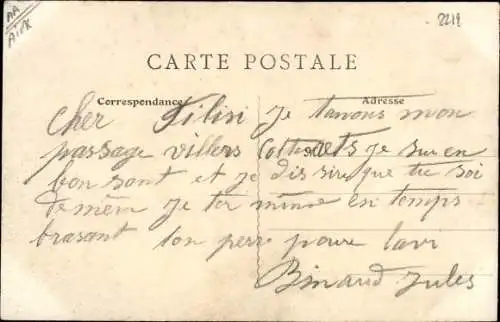 AA
AISNE
2219
CARTE POSTALE
Correspondance
Adresse
cher je tavous mon
passage villers Cotterets je sui en
bon sant et je dis sire que tu soi
de mêm je ter mine en temps
brasant ton pere pour lavi
Binaud Jules